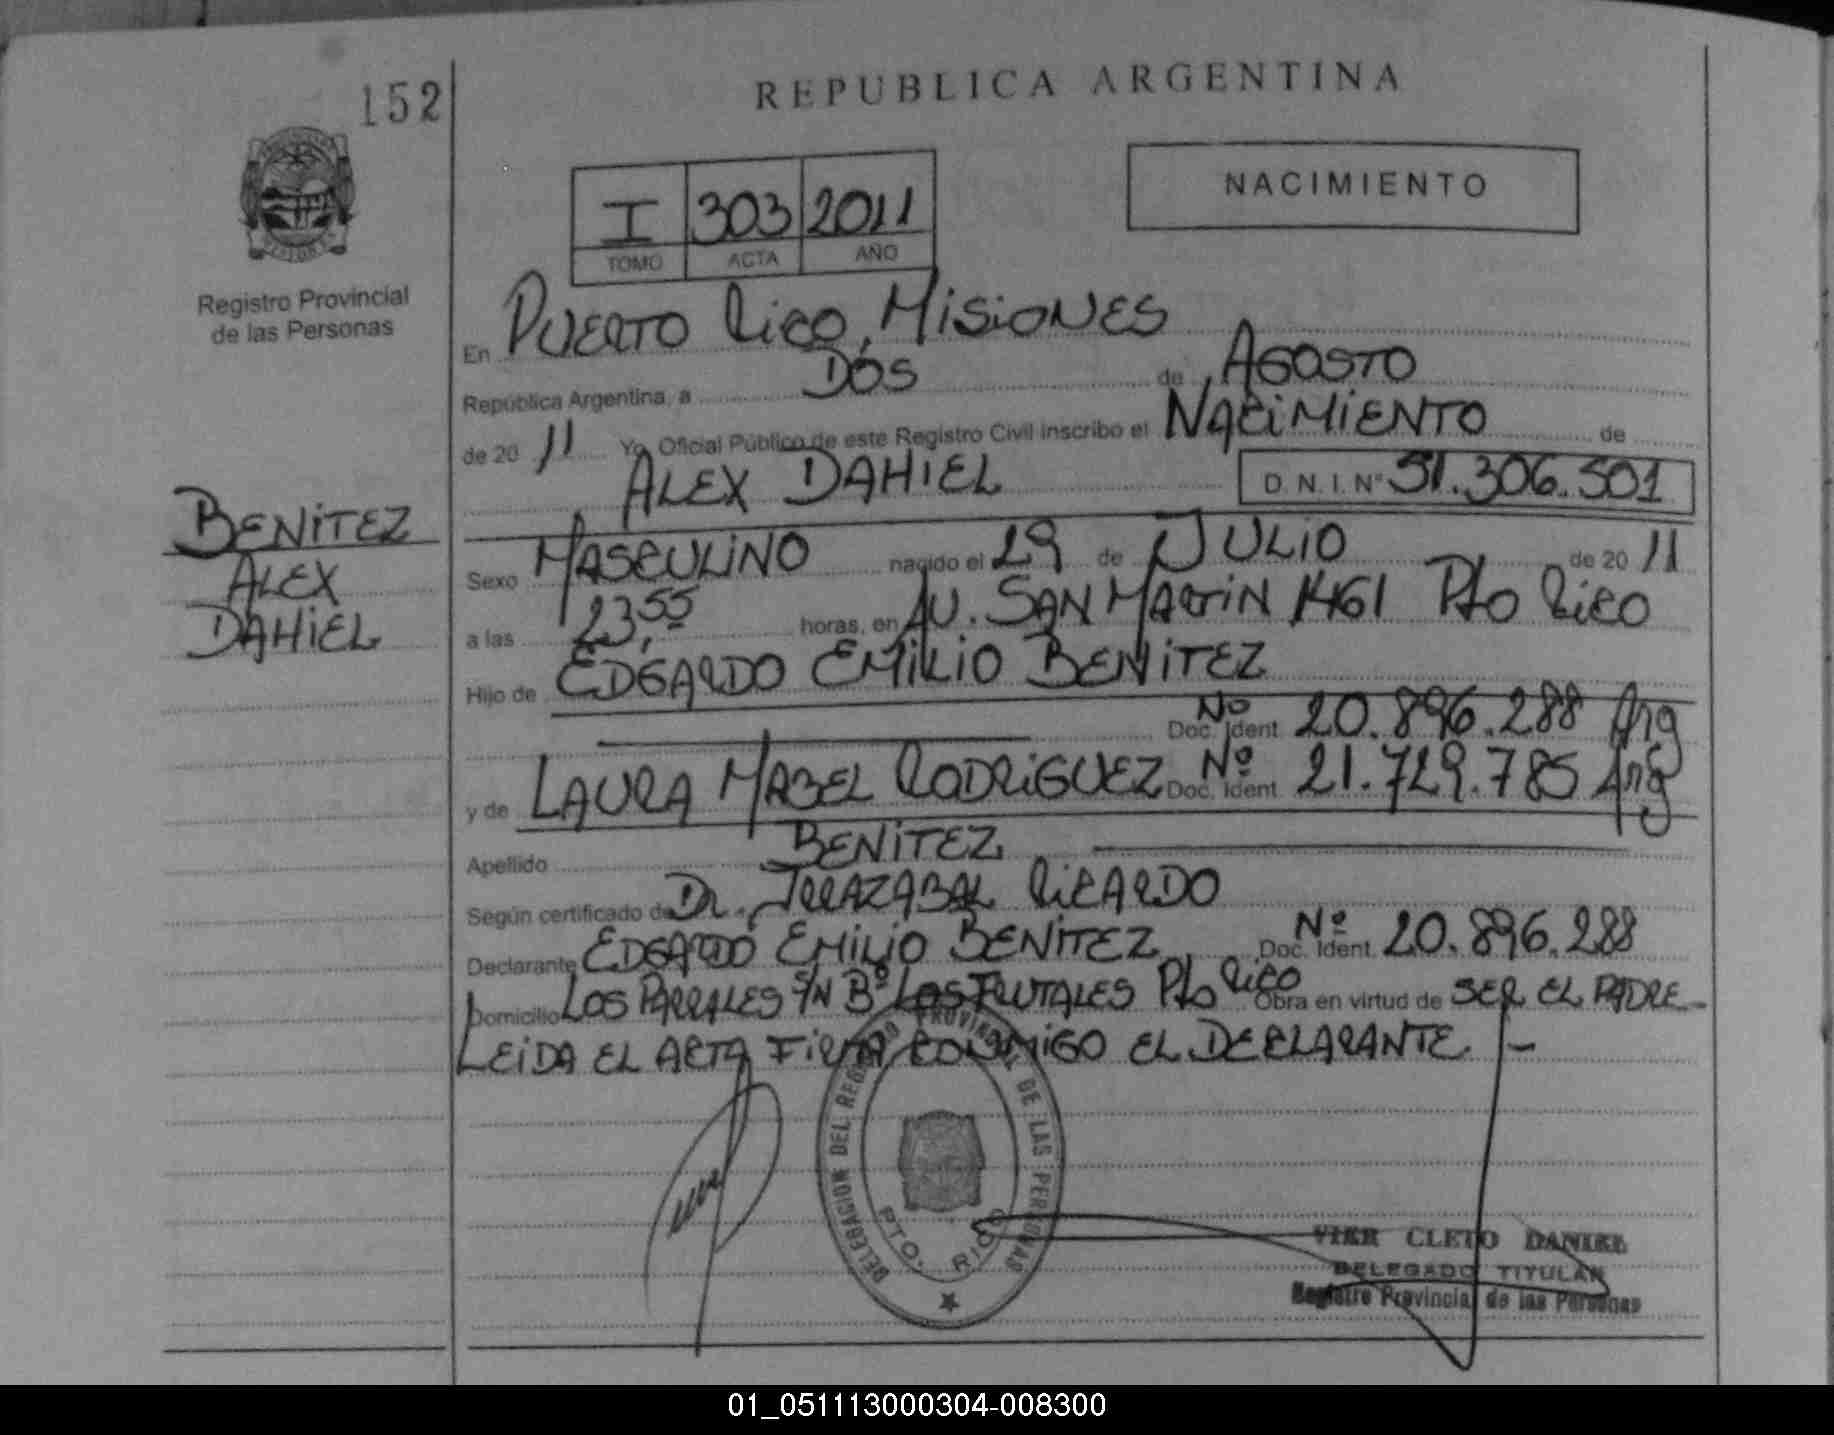 152
REPUBLICA ARGENTINA
NACIMIENTO
I 303 2011
TOMO ACTA AÑO
Registro Provincial
de las Personas
En PUERTO RICO, MISIONES
República Argentina, a DOS de AGOSTO
de 20 11 Yo, Oficial Público de este Registro Civil inscribo el NACIMIENTO de
ALEX DAHIEL D.N.I. Nº 51.306.501
BENITEZ
ALEX
DAHIEL
Sexo MASCULINO nacido el 29 de JULIO de 20 11
a las 23,55 horas, en AV. SAN MARTIN 1461 Pto RICO
Hijo de EDGARDO EMILIO BENITEZ
Nº Doc. Ident. 20.896.288 Arg
y de LAURA MABEL RODRIGUEZ Nº Doc. Ident. 21.729.785 Arg
Apellido BENITEZ
Según certificado de Dr. IRRAZABAL RICARDO
Declarante EDGARDO EMILIO BENITEZ Nº Doc. Ident. 20.896.288
Domicilio LOS PARRALES S/N Bº LOS FRUTALES Pto RICO Obra en virtud de SER EL PADRE
LEIDA EL ACTA FIRMA CONMIGO EL DECLARANTE. -
DELEGACION DEL REGISTRO PROVINCIAL DE LAS PERSONAS
PTO. RICO
VIER CLETO DANIEL
DELEGADO TITULAR
Registro Provincial de las Personas
01_051113000304-008300